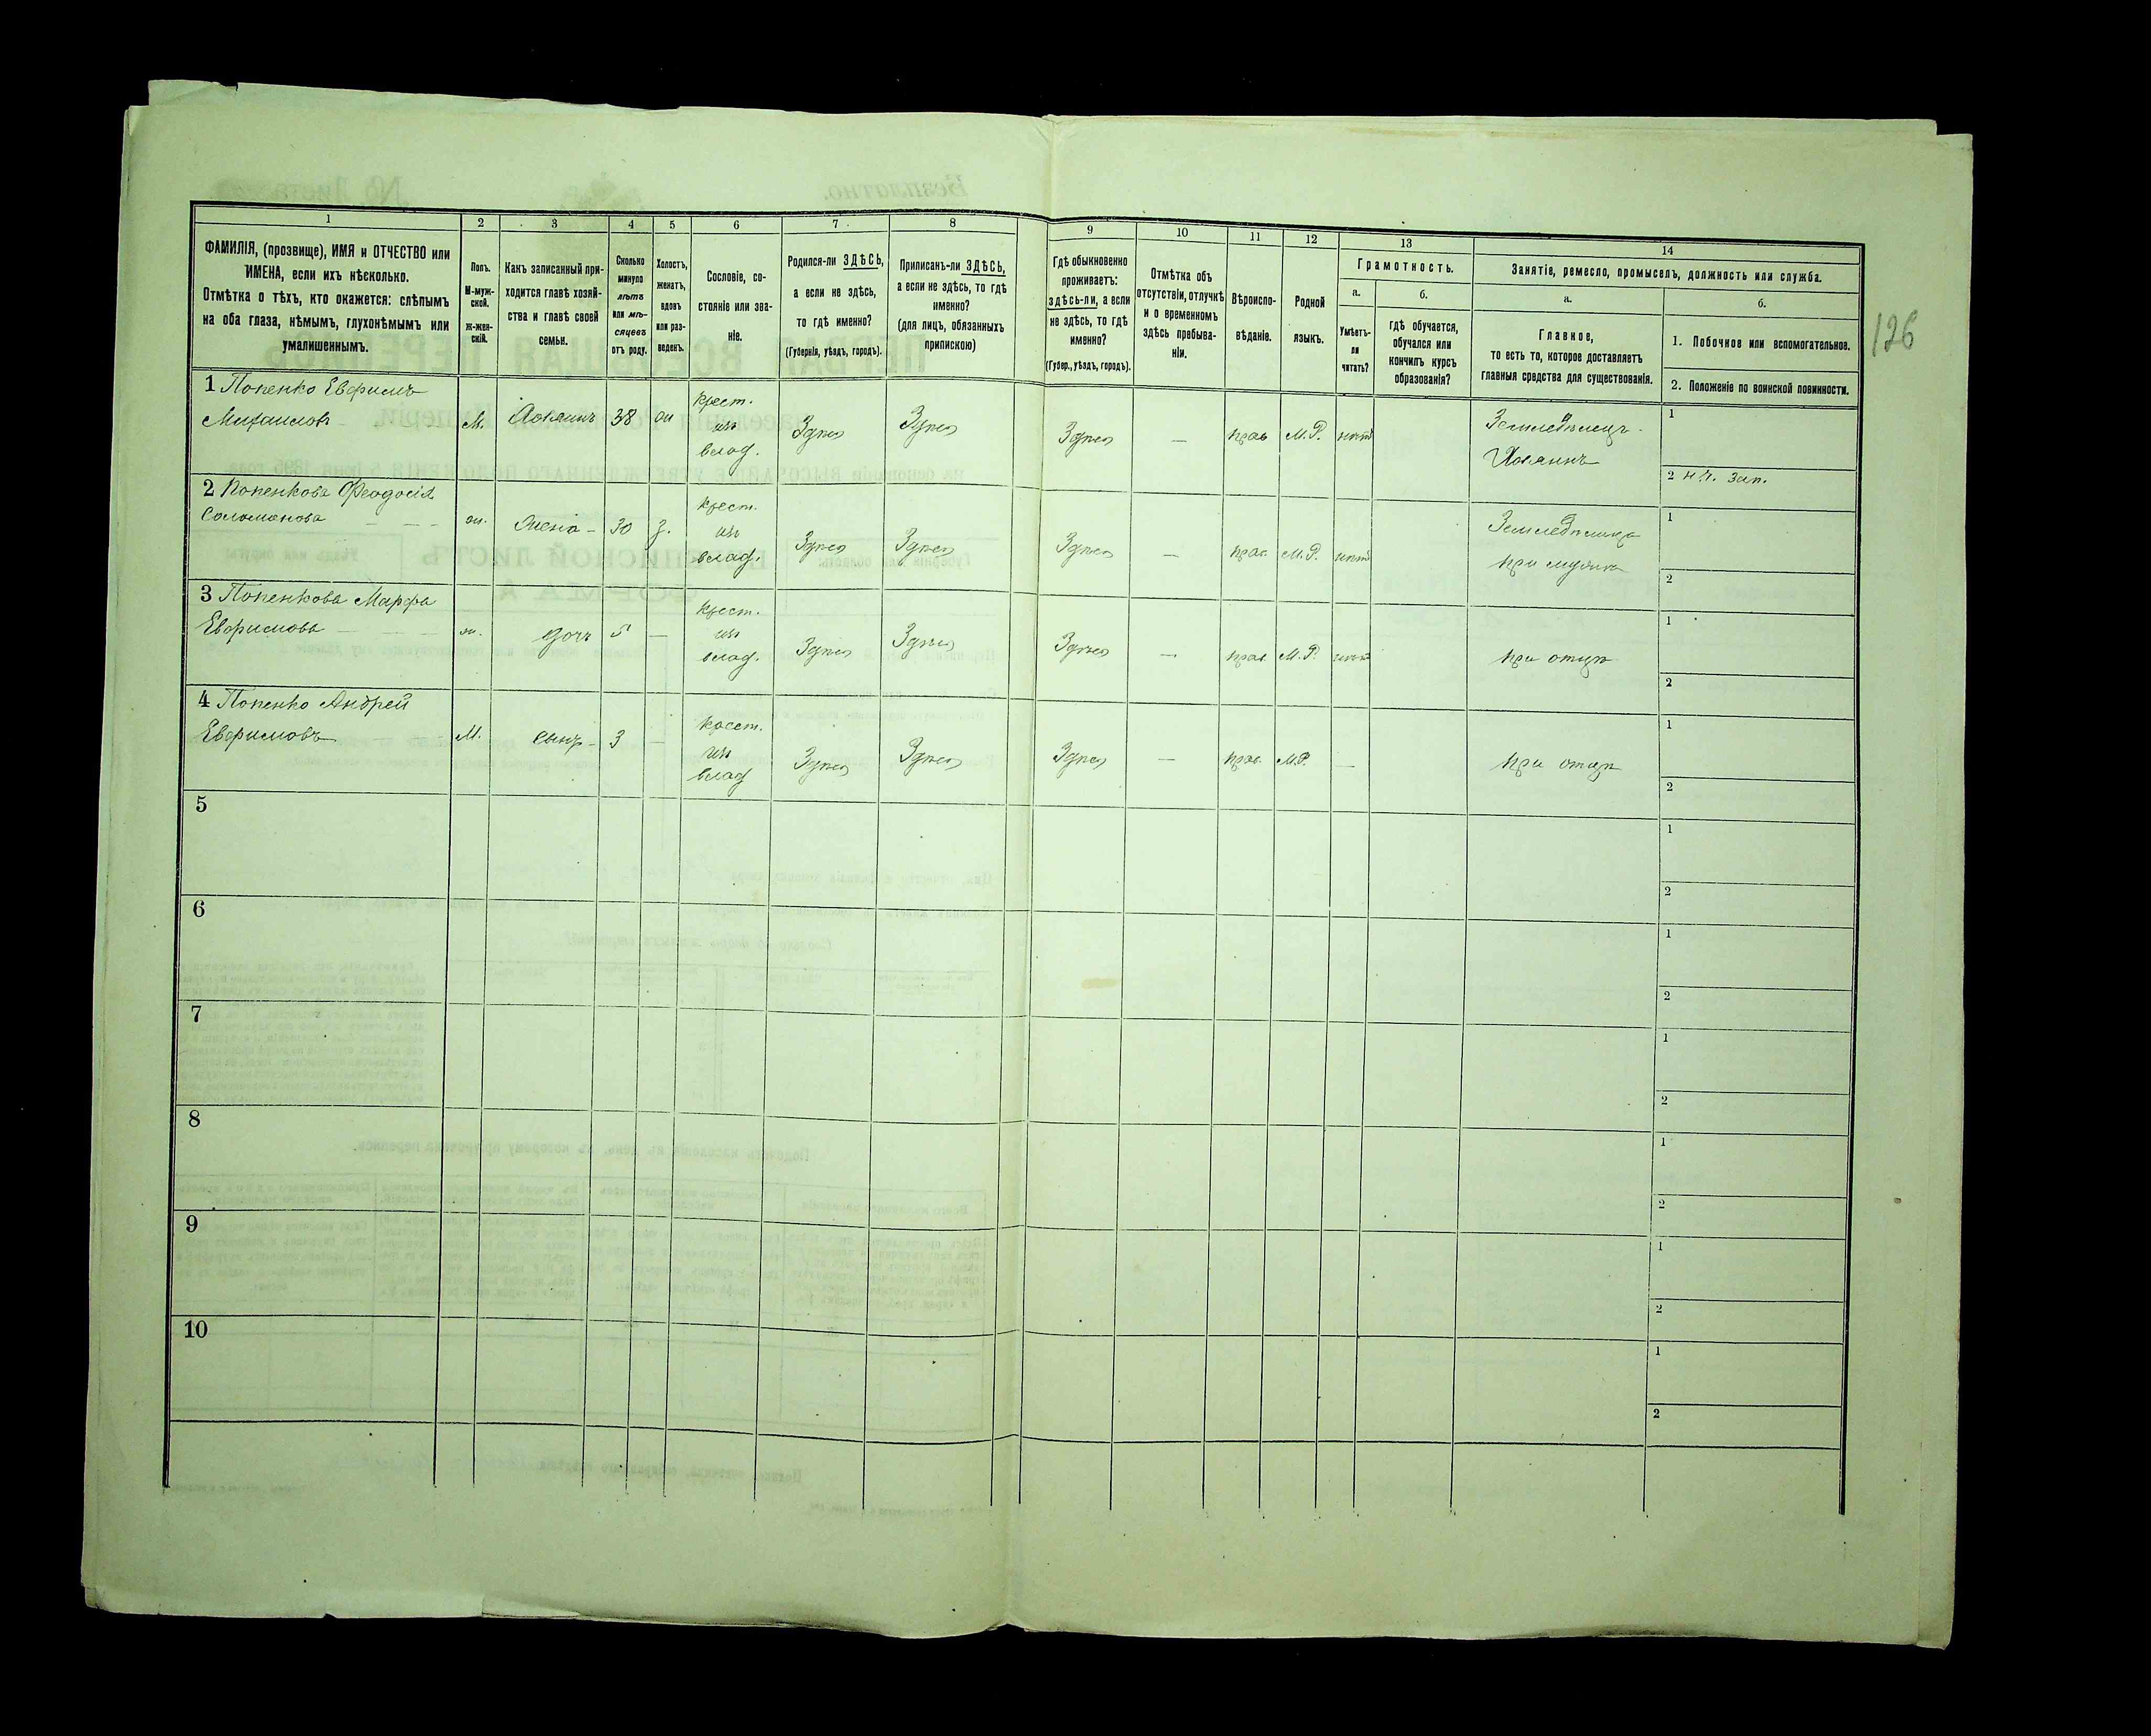 1
2
3
4
5
6
7
8
9
10
11
12
13
14
ФАМИЛІЯ, (прозвище), ИМЯ и ОТЧЕСТВО или
ИМЕНА, если ихъ нѣсколько.
Отмѣтка о тѣхъ, кто окажется: слѣпымъ
на оба глаза, нѣмымъ, глухонѣмымъ или
умалишеннымъ.
Полъ.
М-муж-
ской.
ж-жен-
скій.
Какъ записанный при-
ходится главѣ хозяй-
ства и главѣ своей
семьи.
Сколько
минуло
лѣтъ
или мѣ-
сяцевъ
отъ роду.
Холостъ,
женатъ,
вдовъ
или раз-
веденъ.
Сословіе, со-
стояніе или зва-
ніе.
Родился-ли ЗДѢСЬ,
а если не здѣсь,
то гдѣ именно?
(Губернія, уѣздъ, городъ).
Приписанъ-ли ЗДѢСЬ,
а если не здѣсь, то гдѣ
именно?
(для лицъ, обязанныхъ
припискою)
Гдѣ обыкновенно
проживаетъ:
здѣсь-ли, а если
не здѣсь, то гдѣ
именно?
(Губер., уѣздъ, городъ).
Отмѣтка объ
отсутствіи, отлучкѣ
и о временномъ
здѣсь пребыва-
ніи.
Вѣроиспо-
вѣданіе.
Родной
языкъ.
Грамотность.
а.
Умѣетъ-
ли
читать?
б.
гдѣ обучается,
обучался или
кончилъ курсъ
образованія?
Занятіе, ремесло, промыселъ, должность или служба.
а.
Главное,
то есть то, которое доставляетъ
главныя средства для существованія.
б.
1. Побочное или вспомогательное.
2. Положеніе по воинской повинности.
126
1 Попенко Евфимъ
Михаиловъ
М.
Хозяинъ
38
ж
крест.
изъ
влад.
Здѣсь
Здѣсь
Здѣсь
—
прав
М.Р.
нѣтъ
Земледѣлецъ -
Хозяинъ
1
2 н.ч. зап.
2 Попенкова Феодосія
Соломонова
ж.
Жена -
30
з.
крест.
изъ
влад.
Здѣсь
Здѣсь
Здѣсь
—
прав.
М.Р.
нѣтъ
Земледѣлица
при мужѣ
1
2
3 Попенкова Марфа
Евфимова
ж.
дочь
5
—
крест.
изъ
влад.
Здѣсь
Здѣсь
Здѣсь
—
прав.
М.Р.
нѣтъ
при отцѣ
1
2
4 Попенко Андрей
Евфимовъ
М.
сынъ -
3
—
крест.
изъ
влад
Здѣсь
Здѣсь
Здѣсь
—
прав.
М.Р.
—
при отцѣ
1
2
5
1
2
6
1
2
7
1
2
8
1
2
9
1
2
10
1
2